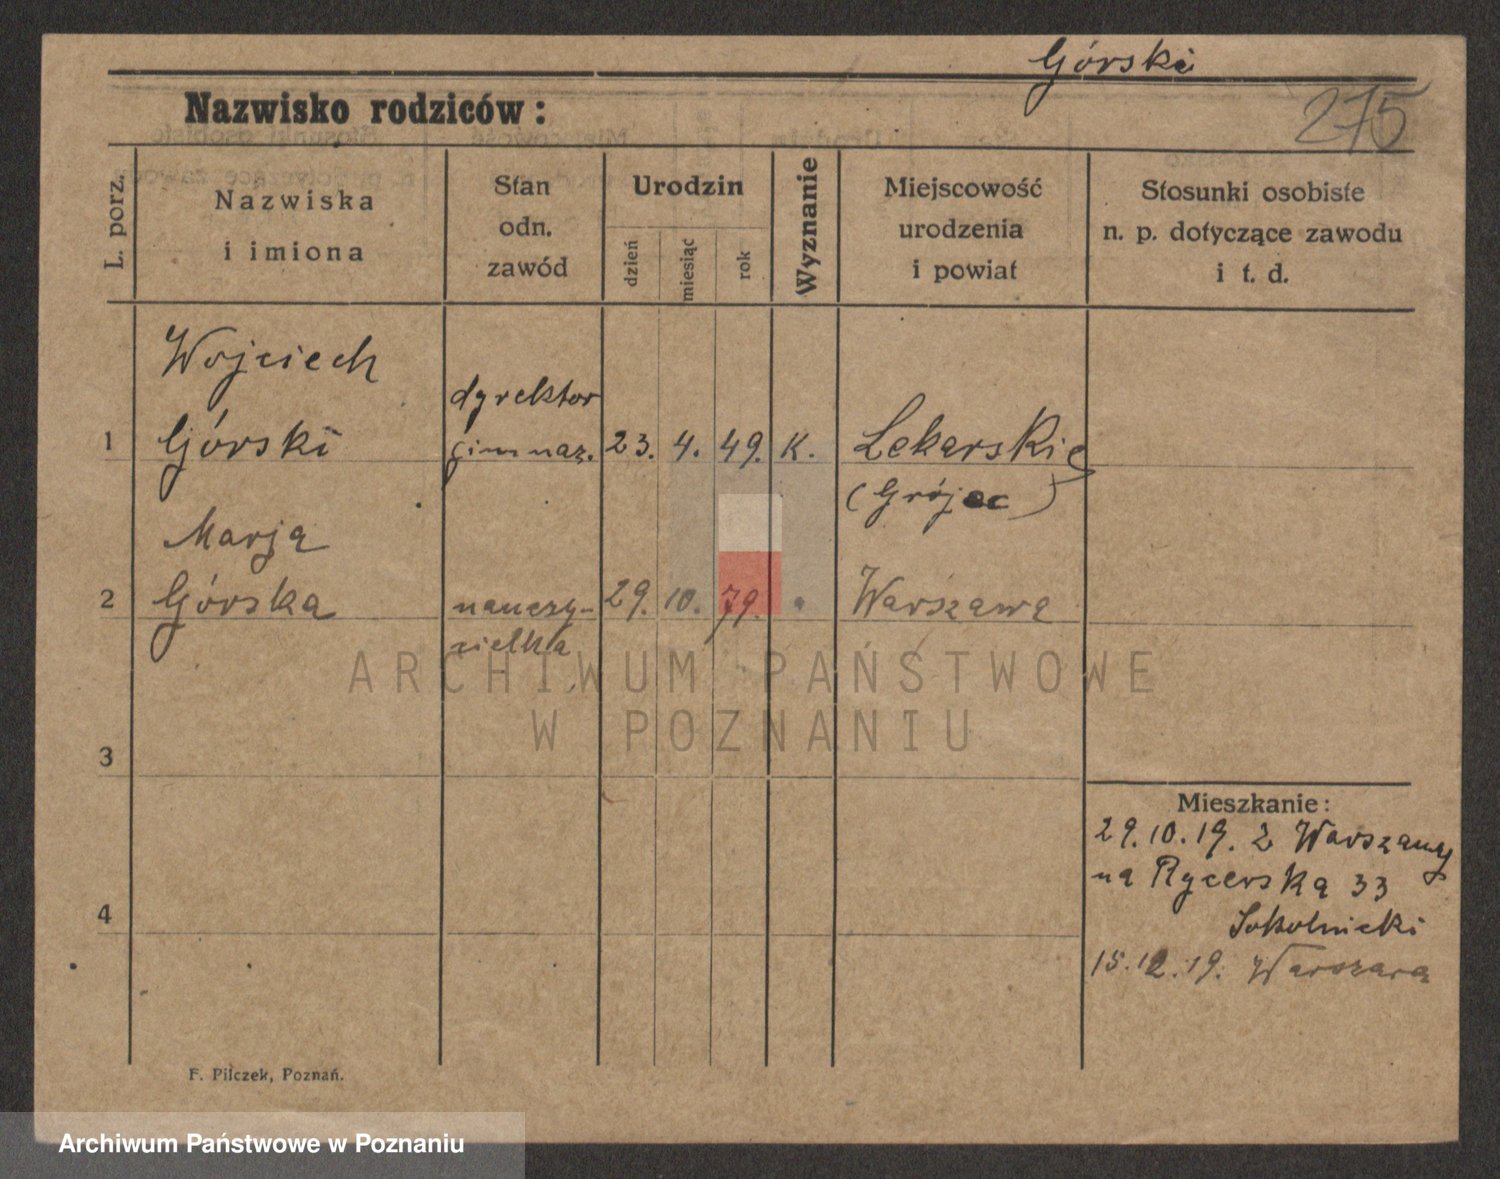 Górski
Nazwisko rodziców:
275
L. porz.
Nazwiska
i imiona
Stan
odn.
zawód
Urodzin
dzień
miesiąc
rok
Wyznanie
Miejscowość
urodzenia
i powiat
Stosunki osobiste
n. p. dotyczące zawodu
i t. d.
Wojciech
dyrektor
1 Górski gimnaz. 23. 4. 49. K. Lekarskie
(Grójec)
Marja
2 Górska nauczy- 29. 10. 79. " Warszawa
cielka
ARCHIWUM PAŃSTWOWE
W POZNANIU
3
Mieszkanie:
29.10.19. z Warszawy
na Rycerską 33
Sokolnicki
4
15.12.19. Warszawa
F. Pilczek, Poznań.
Archiwum Państwowe w Poznaniu